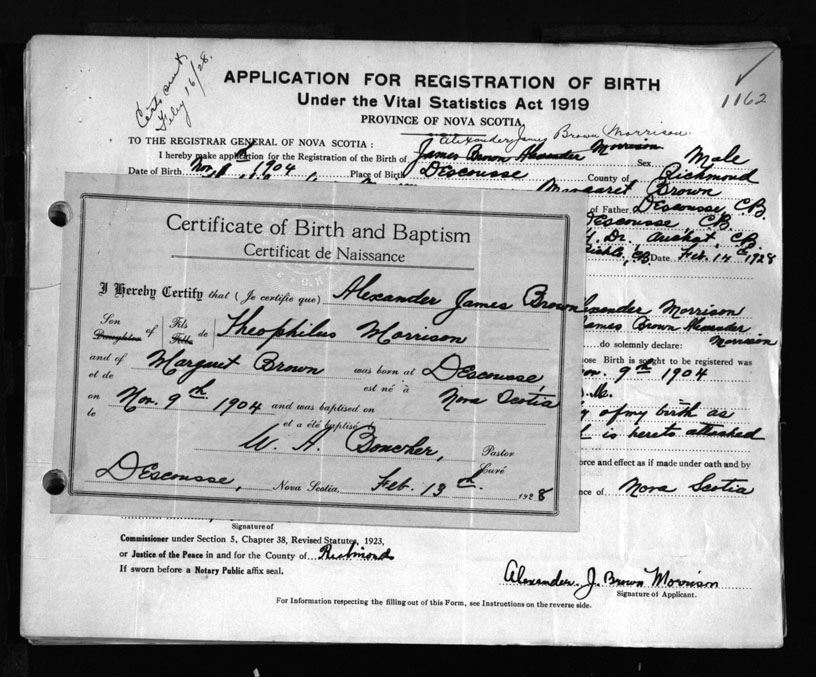 Certs sent
Feby 16/28.
1162
APPLICATION FOR REGISTRATION OF BIRTH
Under the Vital Statistics Act 1919
PROVINCE OF NOVA SCOTIA.
Alexander James Brown Morrison
TO THE REGISTRAR GENERAL OF NOVA SCOTIA:
I hereby make application for the Registration of the Birth of James Brown Alexander Morrison Sex Male
Date of Birth Nov. 9th 1904 Place of Birth Descousse County of Richmond
Margaret Brown
of Father Descousse C.B.
Descousse C.B.
Arichat, C.B.
C.B. Date Feb. 14th 1928
Certificate of Birth and Baptism
Certificat de Naissance
I Hereby Certify that (Je certifie que) Alexander James Brown
Son Daughter of Fils Fille de Theophilus Morrison
and of et de Margaret Brown was born at est né à Descousse,
on le Nov. 9th 1904 and was baptised on et a été baptisé le Nova Scotia
W. A. Boucher, Pastor Curé
DEscousse, Nova Scotia, Feb. 13th 1928
Alexander Morrison
James Brown Alexander
Morrison
do solemnly declare:
whose Birth is sought to be registered was
Nov. 9th 1904
of my birth as
is hereto attached
force and effect as if made under oath and by
ce of Nova Scotia
Signature of
Commissioner under Section 5, Chapter 38, Revised Statutes, 1923,
or Justice of the Peace in and for the County of Richmond
If sworn before a Notary Public affix seal.
Alexander J. Brown Morrison
Signature of Applicant.
For Information respecting the filling out of this Form, see Instructions on the reverse side.